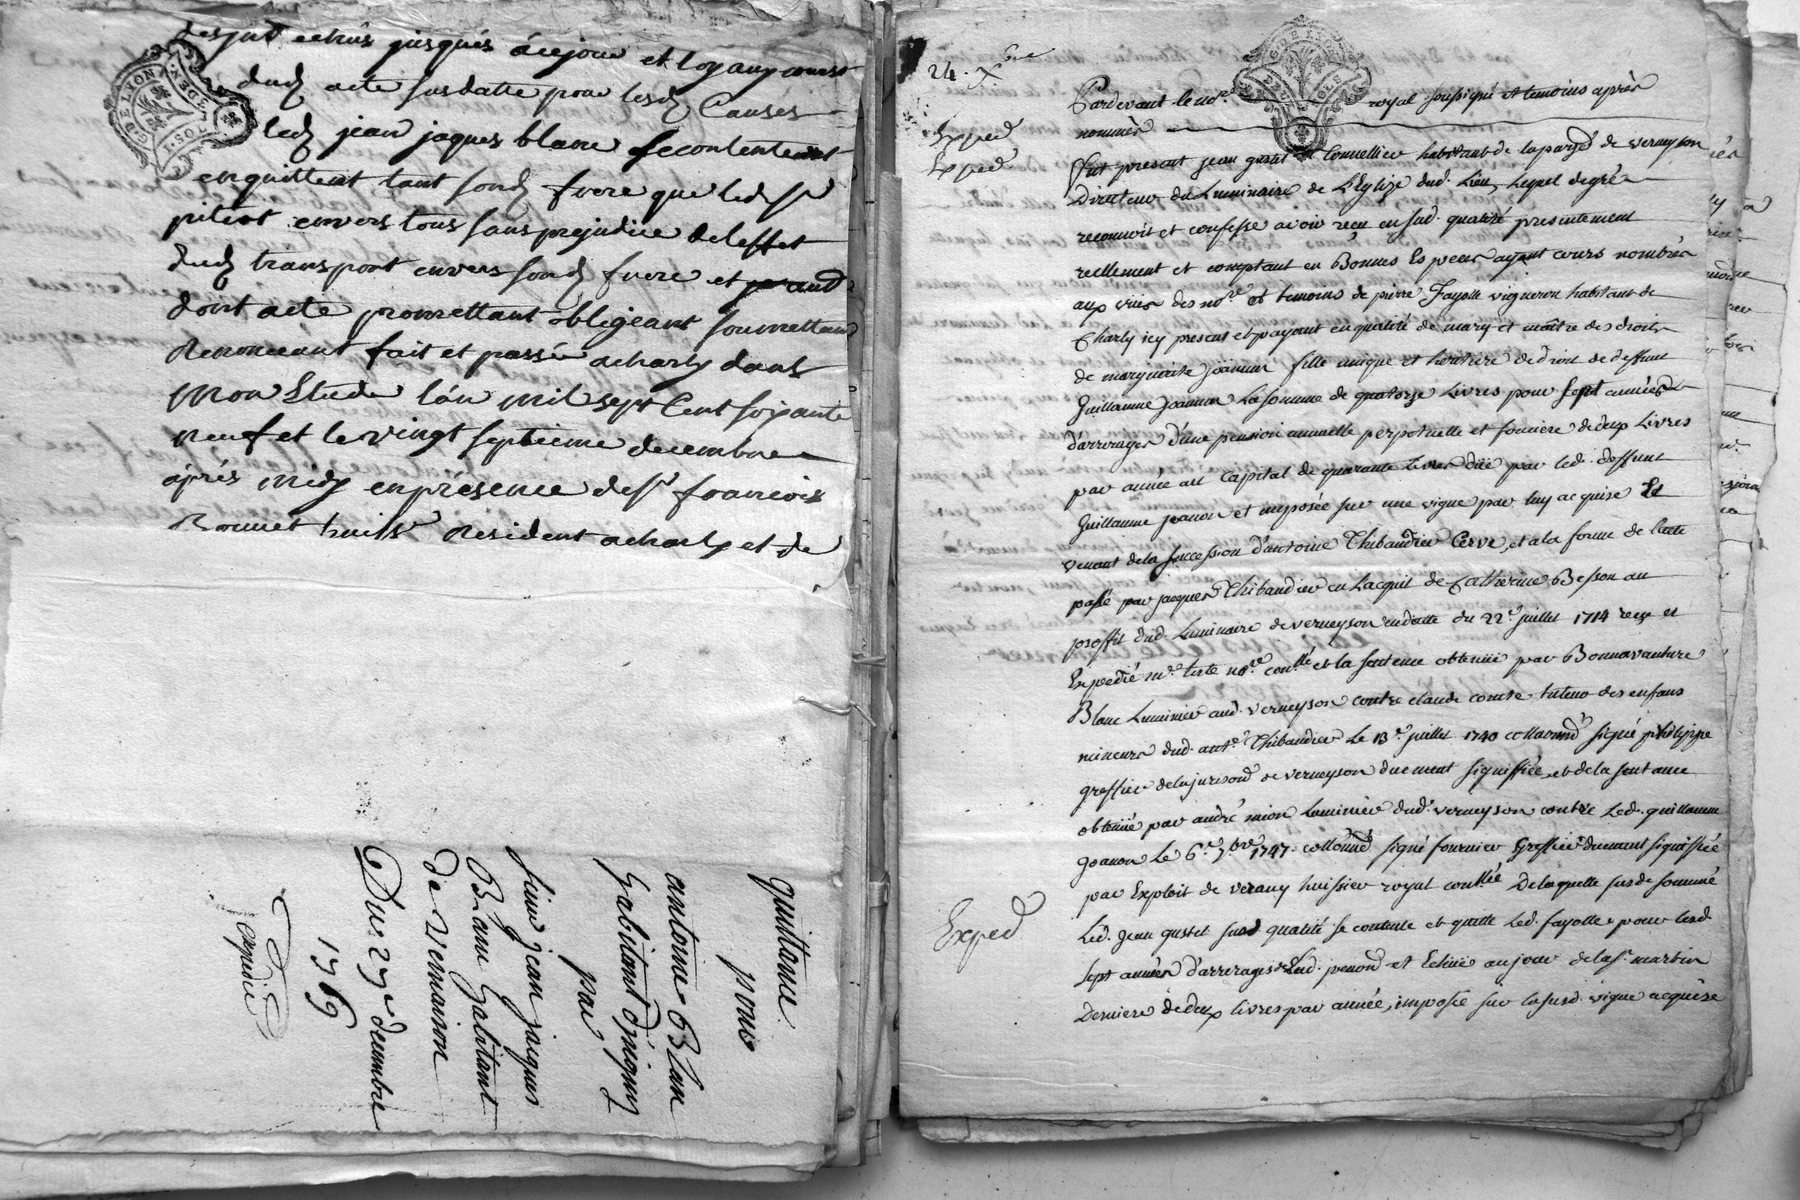 jusques à ce jour et loyaux
dud acte susdatte pour lesd Causes
led jean jaques blanc se contentent
en quittent tant sond frere que led Sr
envers tous sans prejudice de l'effet
dud transport envers sond frere et
dont acte promettant obligeant soumettant
Renonceant fait et passé a charly dans
Mon Etude l'án mil sept Cent soixante
neuf et le vingt septieme decembre
áprés midy en présence de Sr francois
Bonnet huissr Resident a charly et de
quittance
pour
antoine Blan
habitant d'irigny
par
Sieur jean jacques
Blanc habitant
de Vernaison
Du 27e decembre
1769
expedié
G. DE LYON
SOLS
24. Xbre
Exped
Exped
Pardevant le nore royal soussigné et temoins aprés
nommés
Fut present jean gustet tonnellier habitant de la paroisse de verneyson
Directeur du Luminaire de L'Eglize dud. Lieu, Lequel de gré
reconnoit et confesse avoir reçu en sud. qualité presentement
reellement et comptant en Bonnes Especes ayant cours nombrés
aux vües des nore et temoins de pierre Fayolle vigneron habitant de
Charly icy present et payant en qualité de mary et maître des droits
de marguerite joannon fille unique et heritiere de droit de deffunt
Guillaume joannon La somme de quatorze Livres pour sept années
d'arrerages d'une pension annuelle perpetuelle et fonciere de deux Livres
par année au Capital de quarante Livres düe par led. deffunt
Guillaume joanon et imposée sur une vigne par luy acquise Et
venant de la succession d'antoine Thibaudier Cerve, et a la forme de l'acte
passé par jacques Thibaudier en Lacquit de Catherine Besson au
proffit dud. Luminaire de verneyson en datte du 22e juillet 1714 reçu et
Expedié me teste nore conllé et la sentence obtenüe par Bonnavanture
Blanc Luminier aud. verneyson contre claude comte tuteur des enfans
mineurs dud. ante Thibaudier Le 13e juillet 1740 signé philippe
greffier de la jurisdon de verneyson duement signiffiée, et de la sentance
obtenüe par andré mion Luminier dud. verneyson contre Led. guillaume
joanon Le 6e 7bre 1747 signé fournier Greffier duement signiffiée
par Exploit de verany huissier royal De laquelle susde somme
Led. jean gustet susd qualité se contente et quitte Led. fayolle pour lesd.
Exped
sept années d'arrerages de Lad. pension et Echüe au jour de la st. martin
Derniere de deux livres par année, imposée sur la susd. vigne acquise